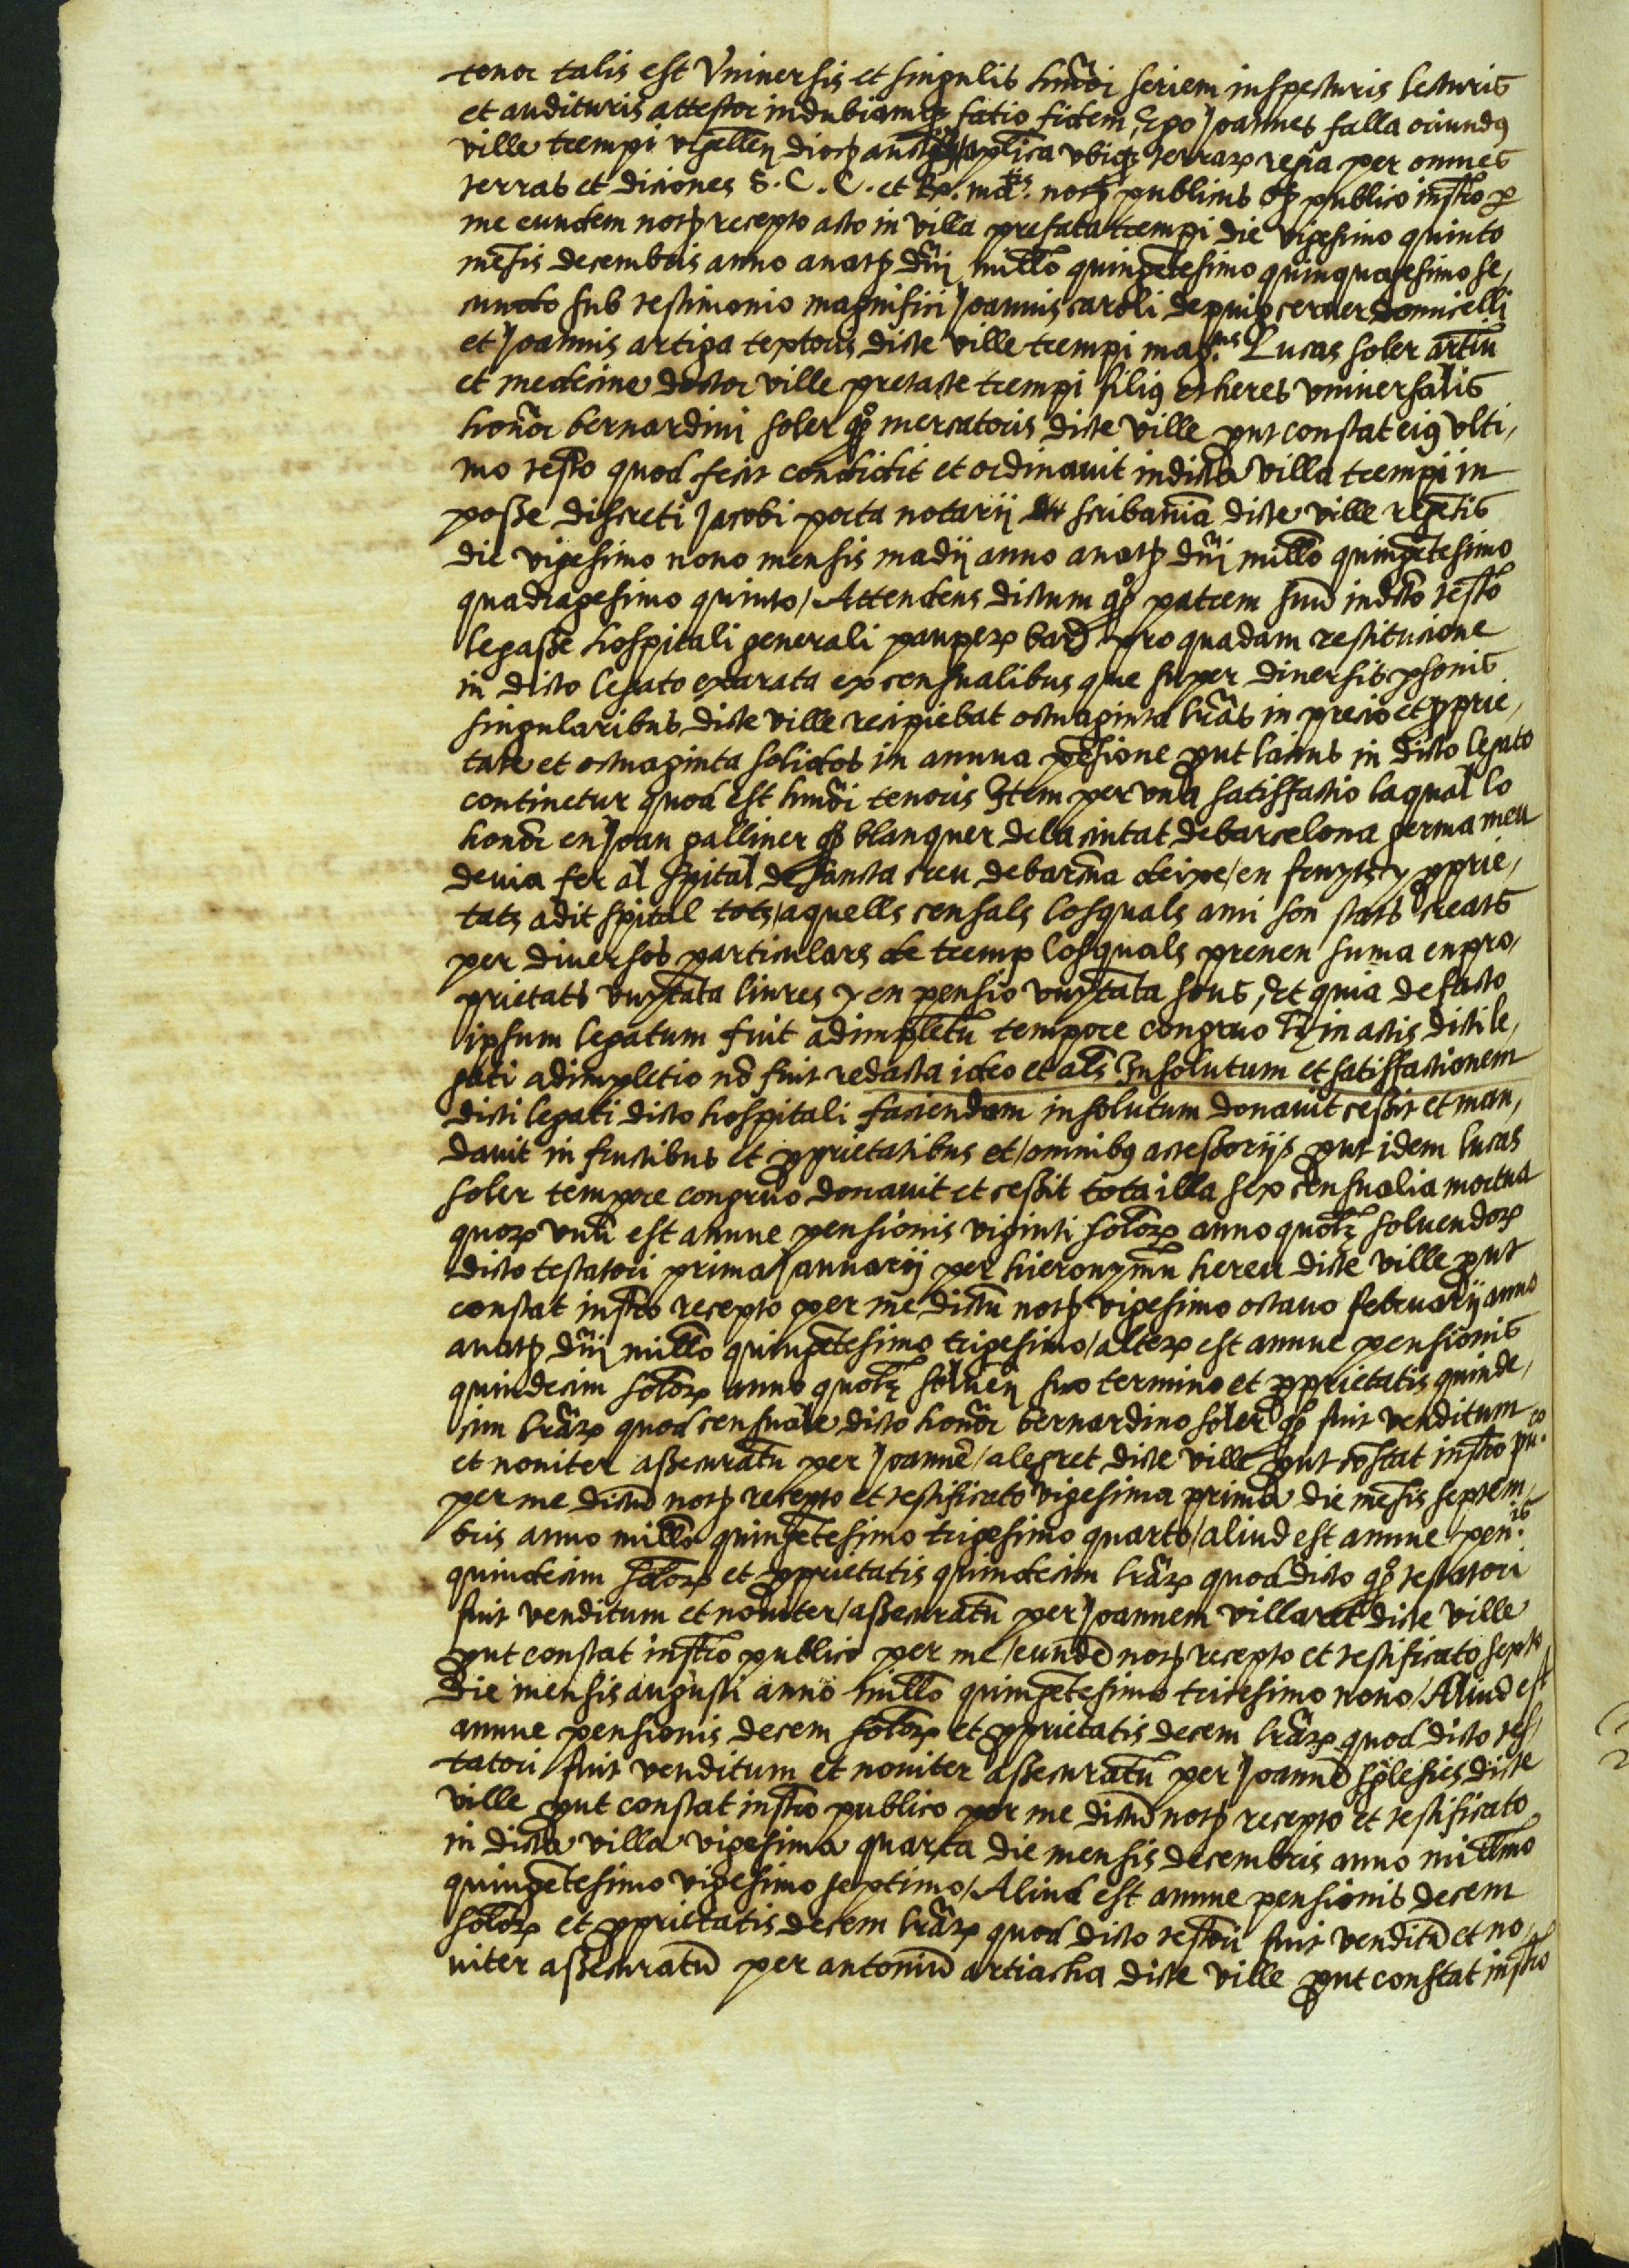 tenor talis est Universis et singulis hmōi seriem inspecturis lecturis
et audituris attestor indubiamq; facio fidem, Ego Joannes falla oriundꝰ
ville trempi Vrgellen̄ dioc̄ aplīca ubiq; terraꝝ regia per omnes
terras et diciones S. C. C. et R. mātis. not̄ publicus q̄ publico instrō ꝑ
me eundem not̄ recepto acto in villa prefata trempi die vigesimo quinto
mēsis decembris anno a nat̄ dn̄i millō quingētesimo quinquagesimo se,
cundo sub testimonio magnifici Joannis caroli de puigcerver domicelli
et Joannis artiga textoris dicte ville trempi mag.cus Lucas soler artiū
et medicine doctor ville pretacte trempi filiꝰ et heres universalis
honōr bernardini soler qº mercatoris dicte ville ꝓut constat eiꝰ ulti,
mo testo quod fecit condidit et ordinavit in dicta villa trempi in
posse discreti Jacobi porta notarij scribaniā dicte ville regētis
die vigesimo nono mensis madij anno a nat̄ dn̄i millō quingētesimo
quadragesimo quinto / Attendens dictum qº patrem suū in dicto testo
legasse hospitali generali pauperꝝ barc̄ pro quadam restitucione
in dicto legato exarata ex censualibus que super diversis ꝑsonis
singularibus dicte ville recipiebat octuaginta librās in precio et ꝓprie,
tate et octuaginta solidos in annua pēsione ꝓut lacius in dicto legato
continetur quod est hmōi tenoris Item per una satisfactio laqual lo
honōr en Joan galliner qº blanquer dela ciutat de barcelona germa meu
devia fer al spital de sancta creu de barc̄na deixe / en fruyts y ꝓprie,
tats adit spital tots / aquells censals losquals ami son stats creats
per diversos particulars de tremp losquals prenen suma en pro,
prietats vuytāta liures y en pensio vuytāta sous, Et quia de facto
ipsum legatum fuit adimpletū tempore congruo tn̄ in actis dicti le,
gati adimpletio nō fuit redacta ideo et als̄ In solutum et satisfactionem
dicti legati dicto hospitali faciendam in solutum donavit cessit et man,
davit in fructibus et ꝓprietatibus et / omnibꝰ accessorijs ꝓut idem lucas
soler tempore congruo donavit et cessit tota illa sex censualia mortua
quoꝝ unū est annue pensionis viginti solōꝝ anno quolꝫ solvendoꝝ
dicto testatori prima Januarij per hieronymū hereu dicte ville ꝓut
constat instrō recepto per me dictū not̄ vigesimo octavo februarij anno
a nat̄ dn̄i millō quingētesimo trigesimo / alteꝝ est annue pensionis
quindecim solōꝝ anno quolꝫ solven̄ suo termino et ꝓprietatis quinde,
cim librāꝝ quod censuale dicto honōr bernardino soler qº fuit venditum
et noviter assecuratū per Joannē / alegret dicte ville ꝓut cōstat instrō pu.co
per me dictū not̄ recepto et testificato vigesima prima die mēsis septem,
bris anno millō quingētesimo trigesimo quarto / aliud est annue / pen.is
quindecim solōꝝ et ꝓprietatis quindecim librāꝝ quod dicto qº testatori
fuit venditum et noviter / assecuratū per Joannem villaret dicte ville
ꝓut constat instrō publico per me / eundē not̄ recepto et testificato sexto
die mensis augusti anno millō quingētesimo tricesimo nono / Aliud est
annue pensionis decem solōꝝ et ꝓprietatis decem librāꝝ quod dicto tes,
tatori fuit venditum et noviter assecuratū per Joannē sglesies dicte
ville ꝓut constat instrō publico per me dictū not̄ recepto et testificato
in dicta villa vigesima quarta die mensis decembris anno millmo
quingētesimo vigesimo septimo / Aliud est annue pensionis decem
solōꝝ et ꝓprietatis decem librāꝝ quod dicto testōri fuit venditū et no,
viter assecuratū per antoniū artiacha dicte ville ꝓut constat instrō